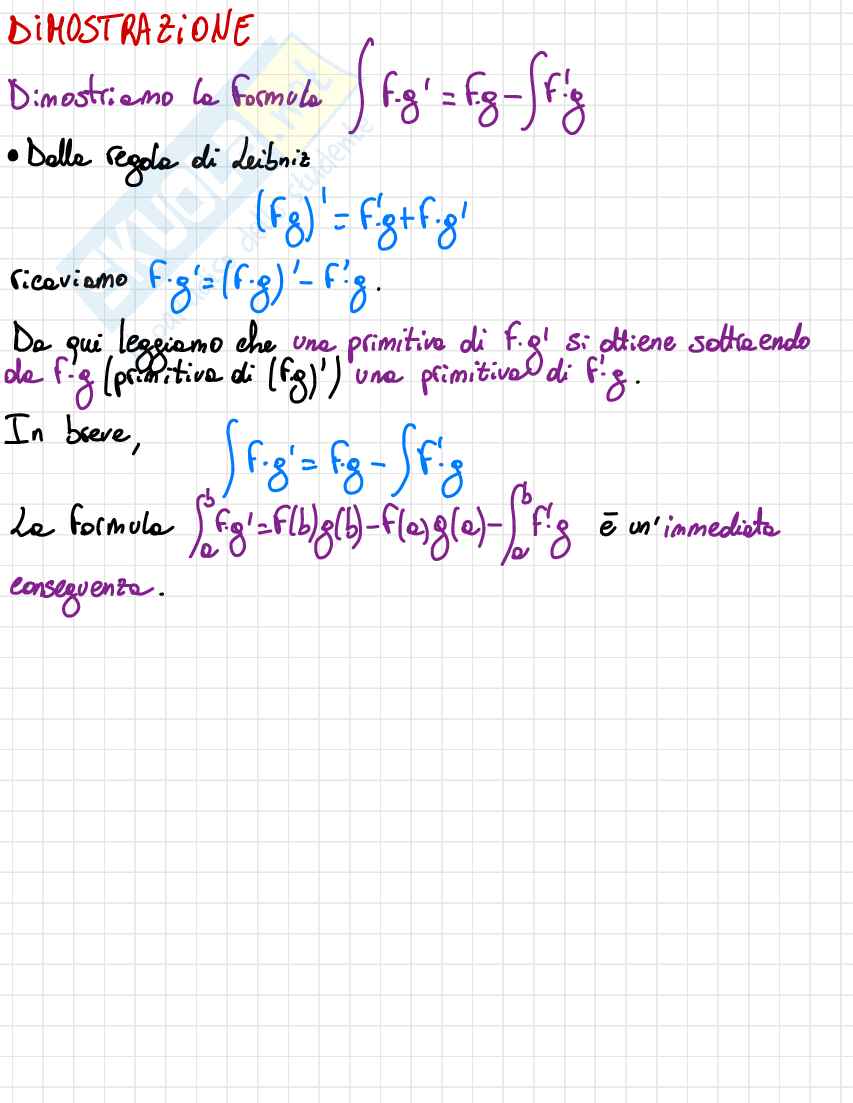 DIMOSTRAZIONE
Dimostriamo la formula ∫ f·g' = fg - ∫ f'·g
• Dalla regola di Leibniz
(fg)' = f'·g + f·g'
ricaviamo f·g' = (f·g)' - f'·g.
Da qui leggiamo che una primitiva di f·g' si ottiene sottraendo
da f·g (primitiva di (fg)') una primitiva di f'·g.
In breve,
∫ f·g' = f·g - ∫ f'·g
La formula ∫_a^b f·g' = f(b)g(b) - f(a)g(a) - ∫_a^b f'·g è un'immediata
conseguenza.